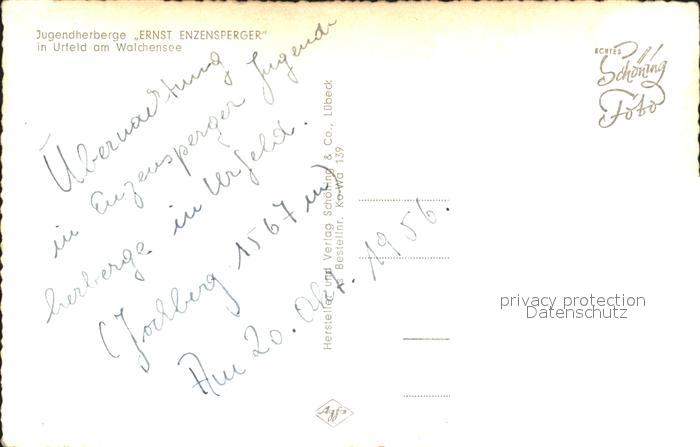 Jugendherberge „ERNST ENZENSPERGER"
in Urfeld am Walchensee
ECHTES
Schöning
Foto
Übernachtung
in Enzensperger Jugend-
herberge in Urfeld.
(Jochberg 1567 m)
Am 20. Okt. 1956.
Hersteller und Verlag Schöning & Co., Lübeck
Bestellnr. Ko-Wa 139
Agfa
privacy protection
Datenschutz